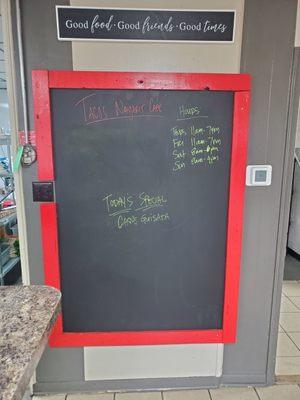 Good food · Good friends · Good times
Tacos Nayarit Cafe
Hours
Thurs 11am-7pm
Fri 11am-7pm
Sat
Sun
Today's Special
Carne Guisada